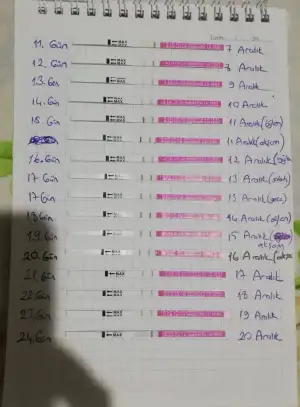 11. Gün MAX 7 Aralık
12. Gün MAX 8 Aralık
13. Gün MAX 9 Aralık
14. Gün MAX 10 Aralık
15. Gün MAX 11 Aralık (öğlen)
MAX 11 Aralık (akşam)
16. Gün MAX 12 Aralık (öğlen)
17 Gün MAX 13 Aralık
17 Gün MAX 13 Aralık (gece)
18 Gün MAX 14 Aralık (akşam)
19. Gün MAX 15 Aralık
akşam
20. Gün MAX 16 Aralık
21. Gün MAX 17 Aralık
22. Gün MAX 18 Aralık
23. Gün MAX 19 Aralık
24. Gün MAX 20 Aralık